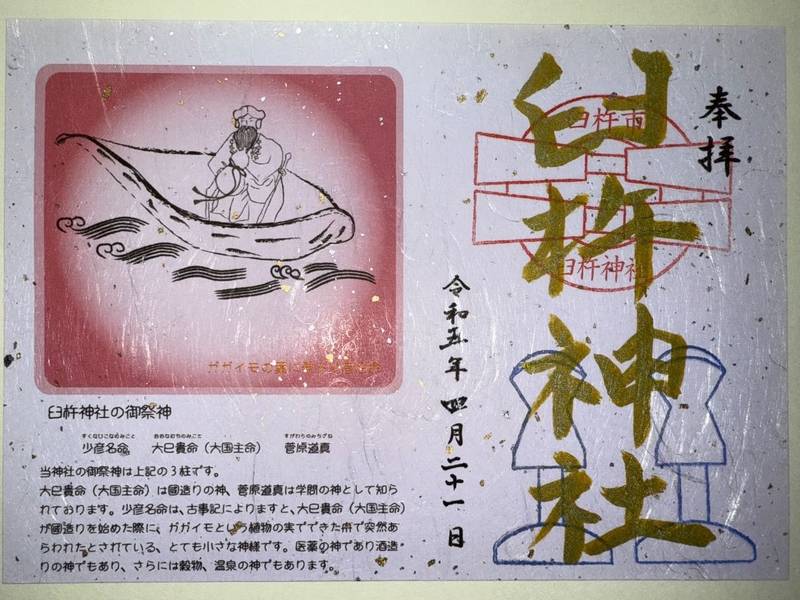 奉拝
臼杵市
臼杵神社
臼杵神社
令和五年 四月二十一日
臼杵神社の御祭神
すくなひこなのみこと おおなむちのみこと すがわらのみちざね
少彦名命 大巳貴命（大国主命） 菅原道真
当神社の御祭神は上記の３柱です。
大巳貴命（大国主命）は國造りの神、菅原道真は学問の神として知ら
れております。少彦名命は、古事記によりますと、大巳貴命（大国主命）
が國造りを始めた際に、ガガイモという植物の実でできた舟で突然あ
らわれたとされている、とても小さな神様です。医薬の神であり酒造
りの神でもあり、さらには穀物、温泉の神でもあります。